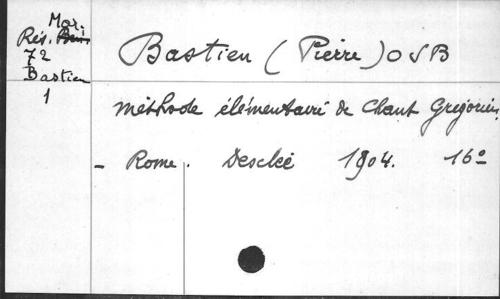 Mor.
Rés.
72
Bastien
1
Bastien (Pierre) OSB
Méthode élémentaire de Chant Grégorien.
- Rome. Desclée 1904. 16°